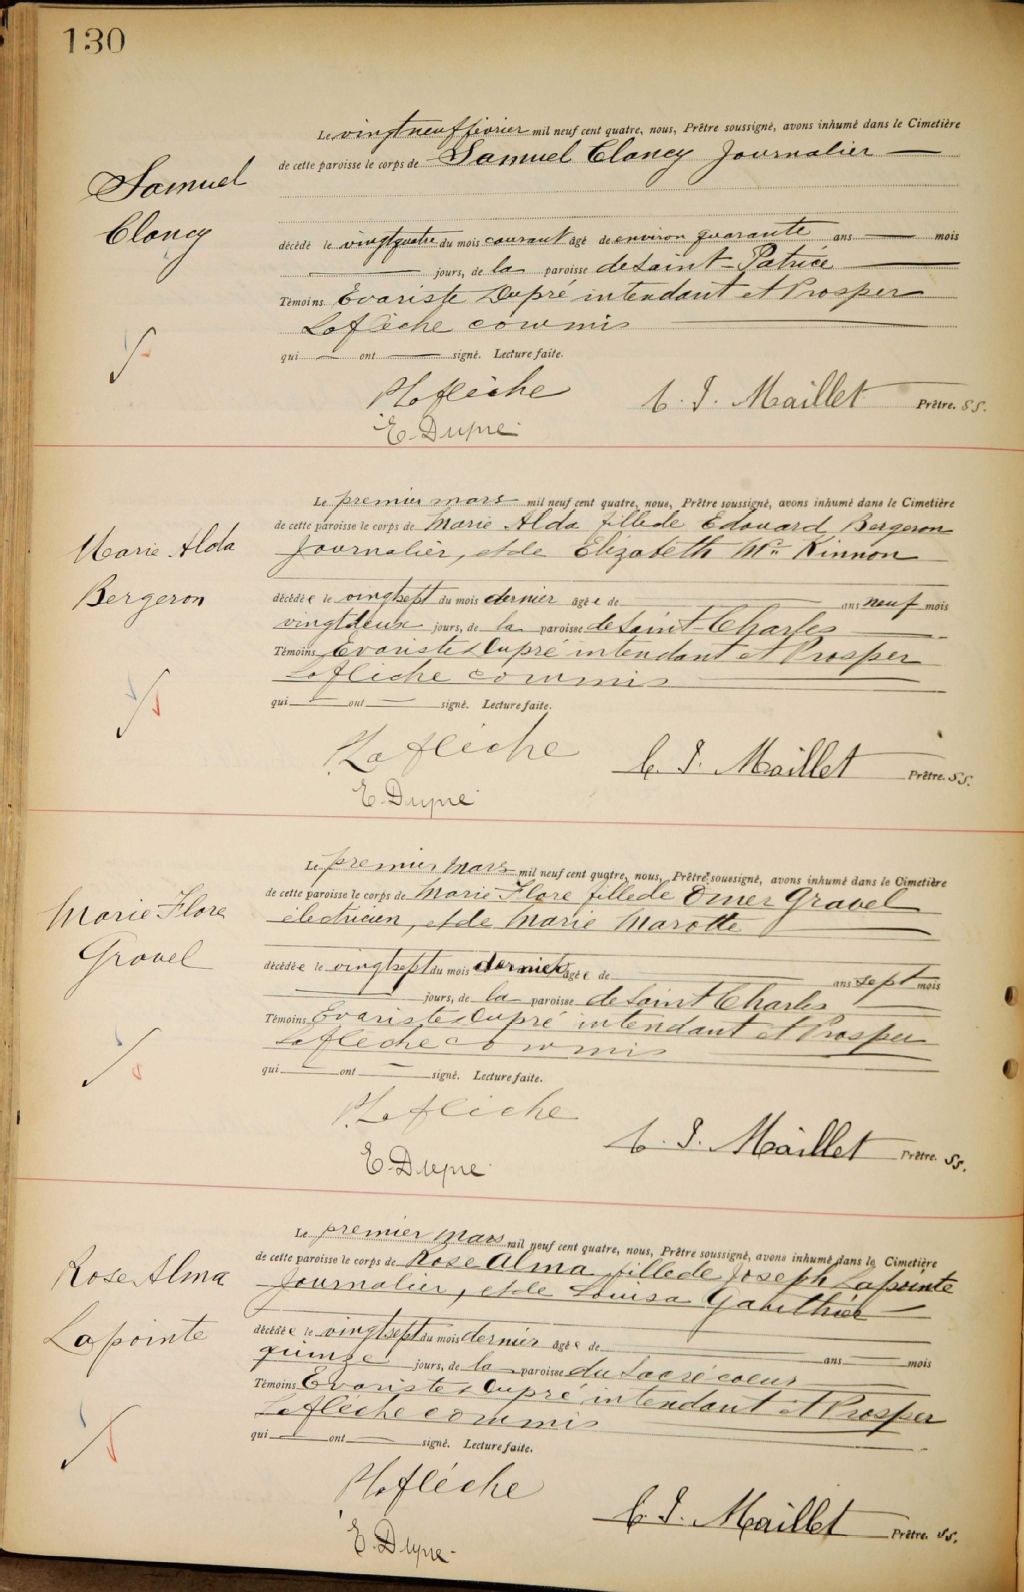 130
Samuel
Clancy
Le vingtneuf février mil neuf cent quatre, nous, Prêtre soussigné, avons inhumé dans le Cimetière
de cette paroisse le corps de Samuel Clancy Journalier
décédé le vingtquatre du mois courant âgé de environ quarante ans mois
jours, de la paroisse de Saint-Patrice
Témoins Evariste Dupré intendant et Prosper
Laflèche commis
qui ont signé. Lecture faite.
P Laflèche
E. Dupré
C. J. Maillet Prêtre. SS.
Marie Alda
Bergeron
Le premier mars mil neuf cent quatre, nous, Prêtre soussigné, avons inhumé dans le Cimetière
de cette paroisse le corps de Marie Alda fille de Edouard Bergeron
Journalier, et de Elizabeth Mc Kinnon
décédée le vingtsept du mois dernier âgée de ans neuf mois
vingtdeux jours, de la paroisse de Saint-Charles
Témoins Evariste Dupré intendant et Prosper
Laflèche commis
qui ont signé. Lecture faite.
P. Laflèche
E. Dupré
C. J. Maillet Prêtre. SS.
Marie Flore
Gravel
Le premier Mars mil neuf cent quatre, nous, Prêtre soussigné, avons inhumé dans le Cimetière
de cette paroisse le corps de Marie Flore fille de Omer Gravel
électricien, et de Marie Marotte
décédée le vingtsept du mois dernier âgée de ans sept mois
jours, de la paroisse de Saint Charles
Témoins Evariste Dupré intendant et Prosper
Laflèche commis
qui ont signé. Lecture faite.
P. Laflèche
E. Dupré
C. J. Maillet Prêtre. SS.
Rose Alma
Lapointe
Le premier Mars mil neuf cent quatre, nous, Prêtre soussigné, avons inhumé dans le Cimetière
de cette paroisse le corps de Rose Alma fille de Joseph Lapointe
Journalier, et de Louisa Gauthier
décédée le vingtsept du mois dernier âgée de ans mois
quinze jours, de la paroisse du Sacré coeur
Témoins Evariste Dupré intendant et Prosper
Laflèche commis
qui ont signé. Lecture faite.
P Laflèche
E. Dupré
C. J. Maillet Prêtre. SS.